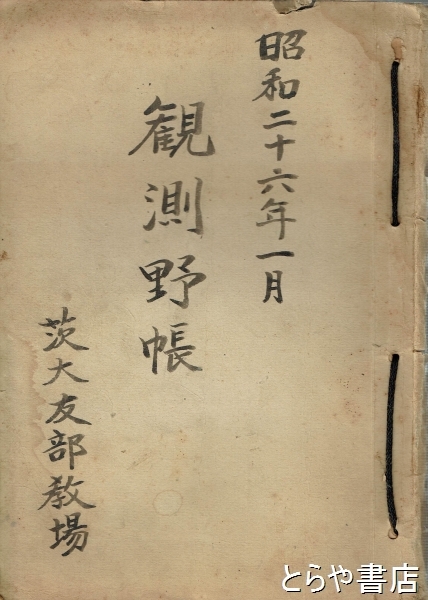 昭和二十六年一月
観測野帳
茨大友部教場
とらや書店